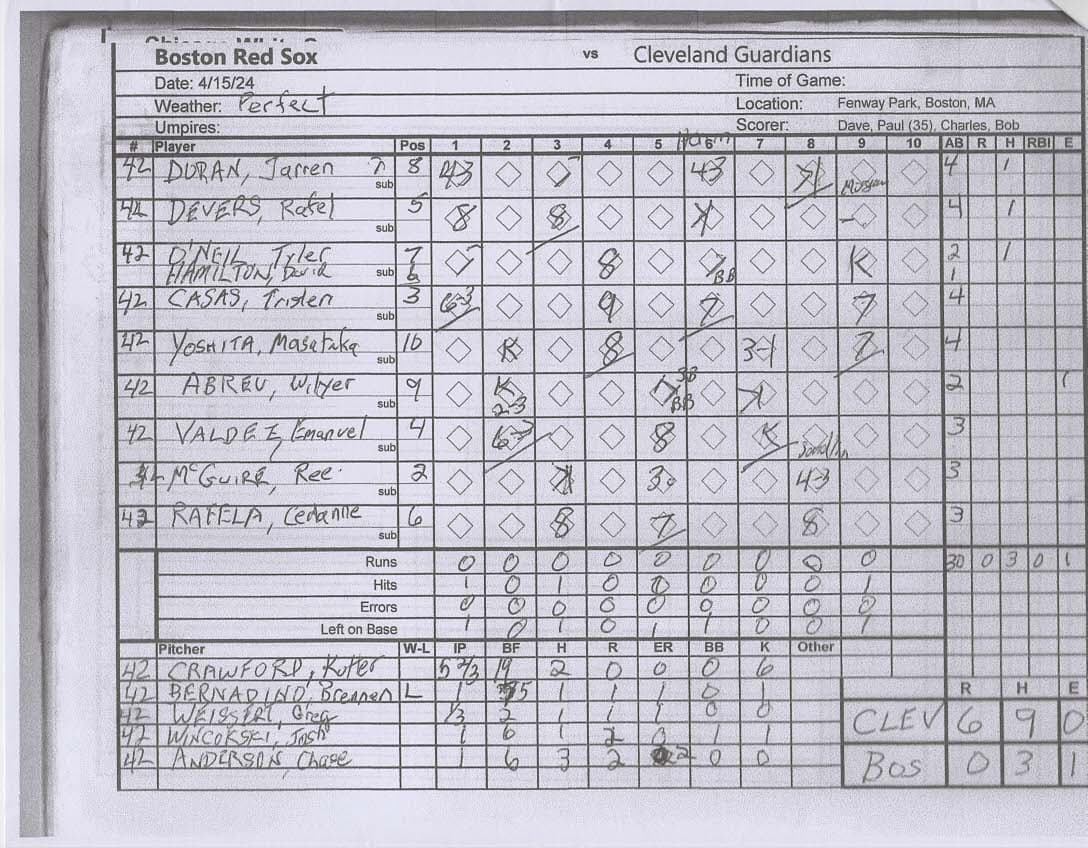 Boston Red Sox vs Cleveland Guardians
Date: 4/15/24 Time of Game:
Weather: Perfect Location: Fenway Park, Boston, MA
Umpires: Scorer: Dave, Paul (35), Charles, Bob
# Player Pos 1 2 3 4 5 6 7 8 9 10 AB R H RBI E
42 DURAN, Jarren 8 43 43 4 1
sub
42 DEVERS, Rafel 5 8 8 4 1
sub
42 O'NEIL, Tyler 7 8 BB K 2 1
HAMILTON, David sub 6 1
42 CASAS, Tristen 3 6-3 9 7 7 4
sub
42 YOSHITA, Masataka 10 K 8 3-1 7 4
sub
42 ABREU, Wilyer 9 K 2-3 BB 2 1
sub
42 VALDEZ, Emanuel 4 6-3 8 K 3
sub
McGUIRE, Ree 2 4-3 3
sub
42 RAFELA, Cedanne 6 8 7 8 3
sub
Runs 0 0 0 0 0 0 0 0 0 30 0 3 0 1
Hits 1 0 1 0 0 0 0 0 1
Errors 0 0 0 0 0 0 0 0 0
Left on Base 1 0 1 0 1 1 0 0 1
Pitcher W-L IP BF H R ER BB K Other
42 CRAWFORD, Kutter 5 2/3 19 2 0 0 0 6
42 BERNADINO, Brennen L 1 5 1 1 1 0 1 R H E
42 WEISSERT, Greg 1/3 2 1 1 1 0 0 CLEV 6 9 0
42 WINCOKSKI, Josh 1 6 1 2 0 1 1
42 ANDERSON, Chase 1 6 3 2 2 0 0 BOS 0 3 1